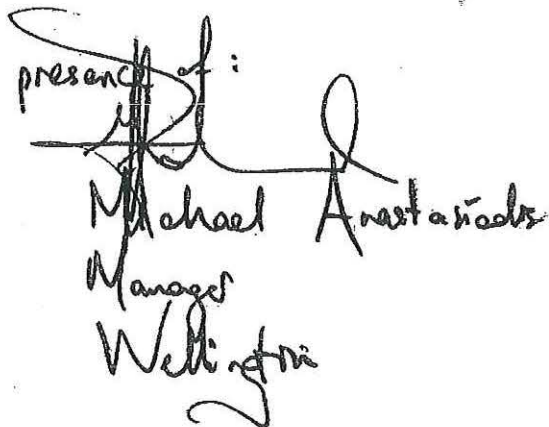 presence of:
Michael Anastasiadis
Manager
Wellington